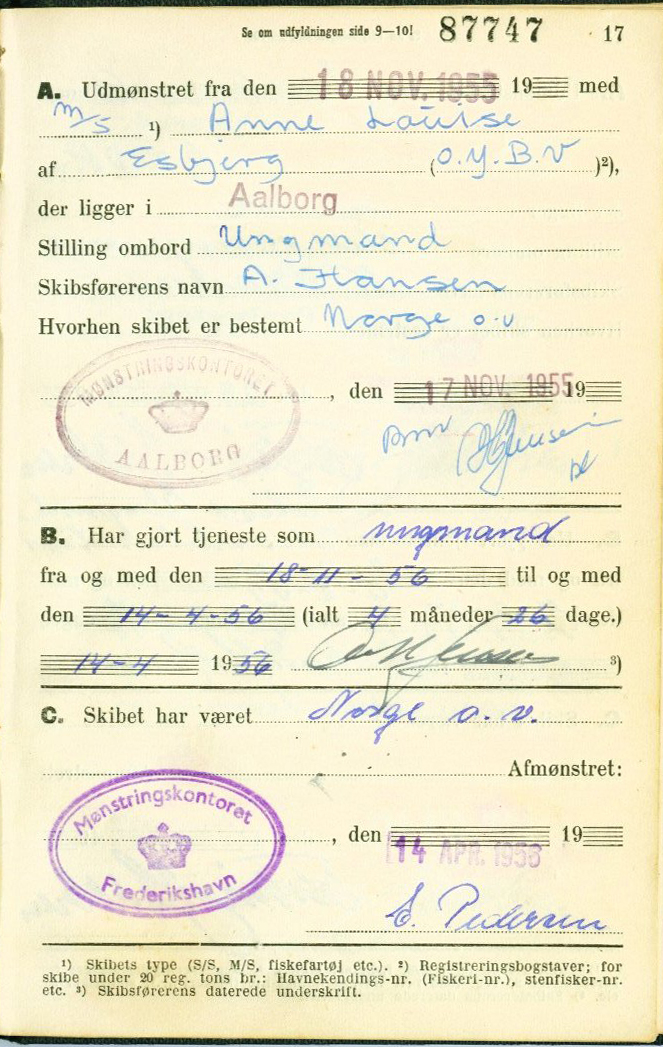 Se om udfyldningen side 9—10! 87747 17
A. Udmønstret fra den 18 NOV. 1955 19 med
M/S ¹) Anne Louise
af Esbjerg (O.Y.B.V )²),
der ligger i Aalborg
Stilling ombord Ungmand
Skibsførerens navn A. Hansen
Hvorhen skibet er bestemt Norge o.v
MØNSTRINGSKONTORET
AALBORG
, den 17 NOV. 1955 19
B. Har gjort tjeneste som ungmand
fra og med den 18-11-56 til og med
den 14-4-56 (ialt 4 måneder 26 dage.)
14-4 1956 ³)
C. Skibet har været Norge o.v.
Afmønstret:
Mønstringskontoret
Frederikshavn
, den 14 APR. 1956 19
E. Pedersen
¹) Skibets type (S/S, M/S, fiskefartøj etc.). ²) Registreringsbogstaver; for
skibe under 20 reg. tons br.: Havnekendings-nr. (Fiskeri-nr.), stenfisker-nr.
etc. ³) Skibsførerens daterede underskrift.